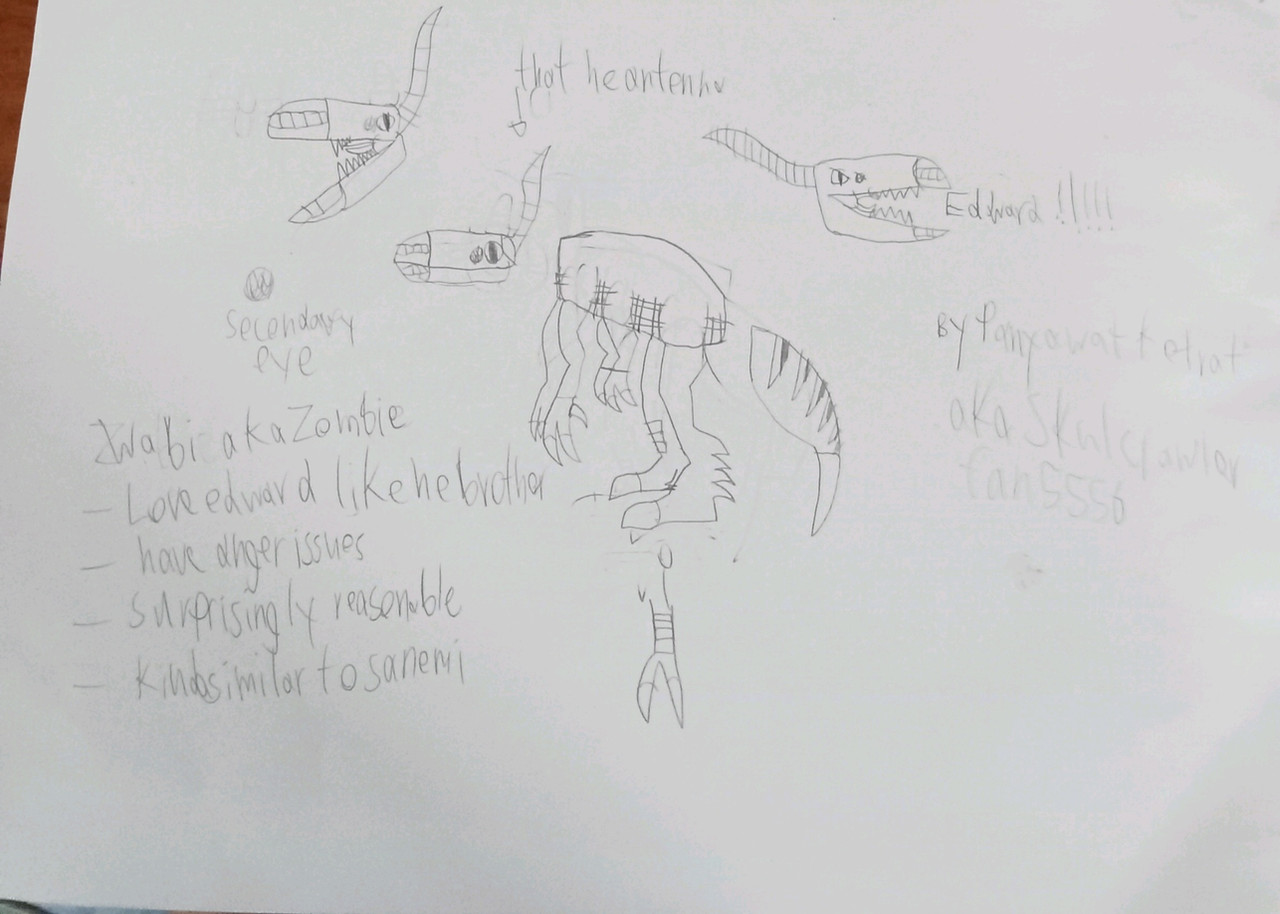 that he antenna
Edward !!!!!
Secondary
eye
By
aka Skulcrawlor
fan5556
Zwabi aka Zombie
- Love edward like he brother
- have anger issues
- surprisingly reasonable
- Kinda similar to sanemi